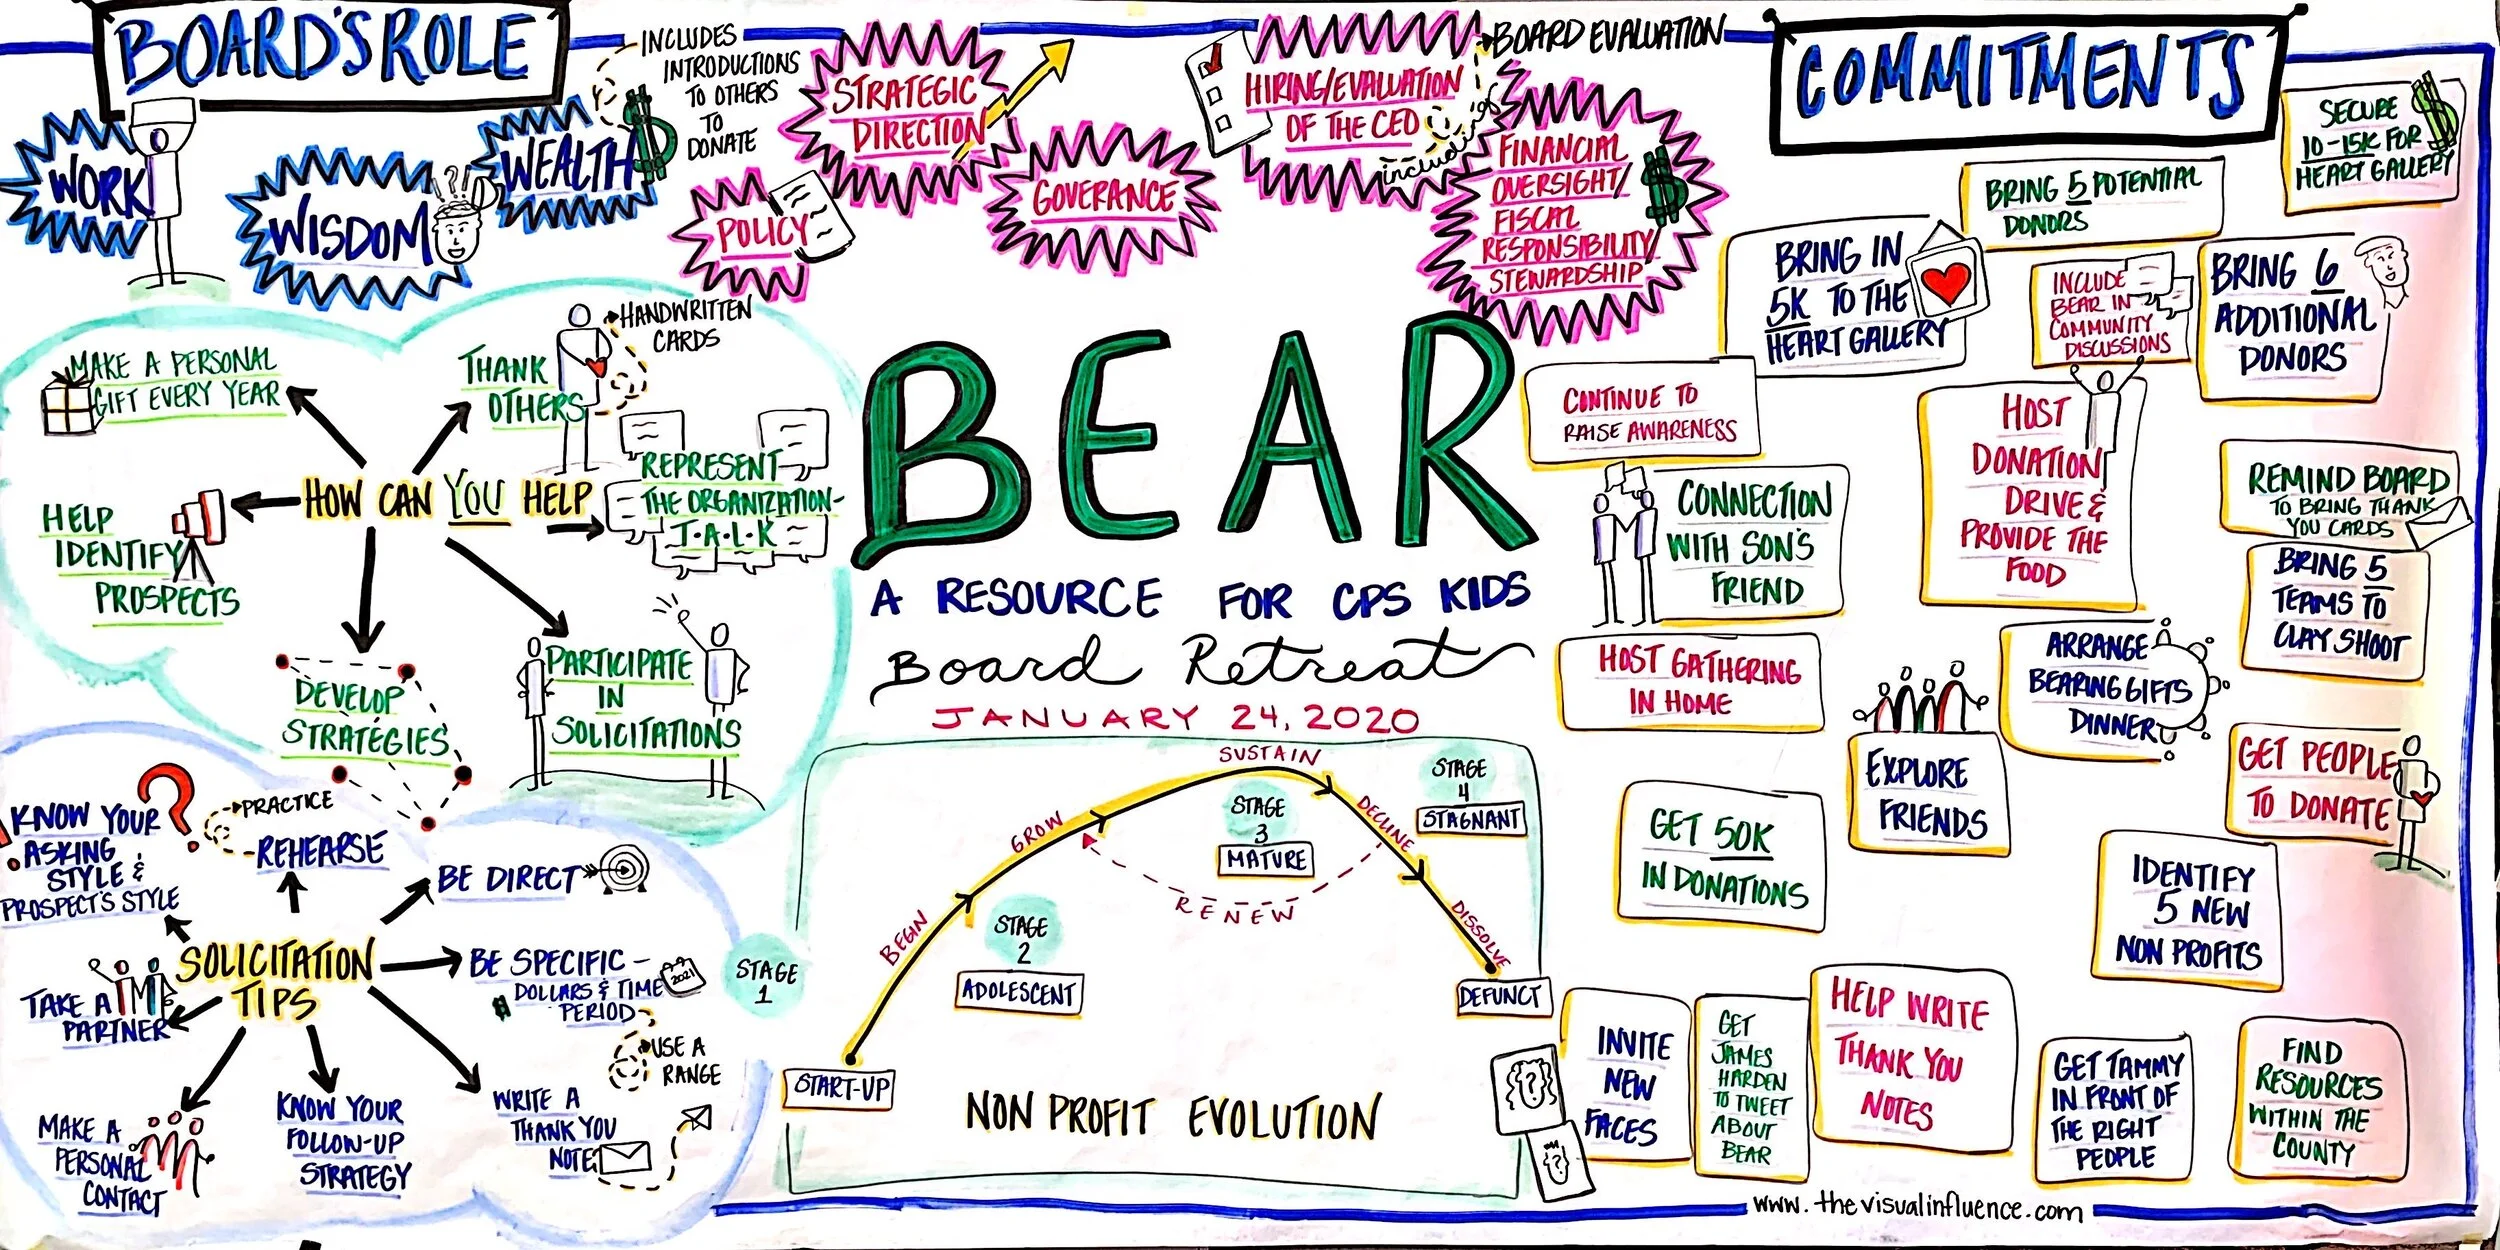 BOARD'S ROLE
WORK
WISDOM
!?!
WEALTH
INCLUDES
INTRODUCTIONS
TO OTHERS
TO
DONATE
POLICY
STRATEGIC
DIRECTION
GOVERANCE
HIRING/EVALUATION
OF THE CEO
includes
BOARD EVALUATION
FINANCIAL
OVERSIGHT/
FISCAL
RESPONSIBILITY/
STEWARDSHIP
HOW CAN YOU HELP
MAKE A PERSONAL
GIFT EVERY YEAR
THANK
OTHERS
HANDWRITTEN
CARDS
REPRESENT
THE ORGANIZATION-
T·A·L·K
HELP
IDENTIFY
PROSPECTS
DEVELOP
STRATEGIES
PARTICIPATE
IN
SOLICITATIONS
SOLICITATION
TIPS
KNOW YOUR
ASKING
STYLE &
PROSPECT'S STYLE
?
PRACTICE
REHEARSE
BE DIRECT
BE SPECIFIC -
$ DOLLARS & TIME
PERIOD
2021
USE A
RANGE
TAKE A
PARTNER
MAKE A
PERSONAL
CONTACT
KNOW YOUR
FOLLOW-UP
STRATEGY
WRITE A
THANK YOU
NOTE
BEAR
A RESOURCE FOR CPS KIDS
Board Retreat
JANUARY 24, 2020
STAGE
1
START-UP
BEGIN
STAGE
2
ADOLESCENT
GROW
SUSTAIN
STAGE
3
MATURE
RENEW
DECLINE
STAGE
4
STAGNANT
DISSOLVE
DEFUNCT
NON PROFIT EVOLUTION
COMMITMENTS
SECURE
10-15K FOR
HEART GALLERY
BRING 5 POTENTIAL
DONORS
BRING IN
5K TO THE
HEART GALLERY
INCLUDE
BEAR IN
COMMUNITY
DISCUSSIONS
BRING 6
ADDITIONAL
DONORS
CONTINUE TO
RAISE AWARENESS
HOST
DONATION
DRIVE &
PROVIDE THE
FOOD
REMIND BOARD
TO BRING THANK
YOU CARDS
CONNECTION
WITH SON'S
FRIEND
BRING 5
TEAMS TO
CLAY SHOOT
HOST GATHERING
IN HOME
ARRANGE
BEARING GIFTS
DINNER
EXPLORE
FRIENDS
GET PEOPLE
TO DONATE
GET 50K
IN DONATIONS
IDENTIFY
5 NEW
NON PROFITS
INVITE
NEW
FACES
?
?
GET
JAMES
HARDEN
TO TWEET
ABOUT
BEAR
HELP WRITE
THANK YOU
NOTES
GET TAMMY
IN FRONT OF
THE RIGHT
PEOPLE
FIND
RESOURCES
WITHIN THE
COUNTY
www.thevisualinfluence.com